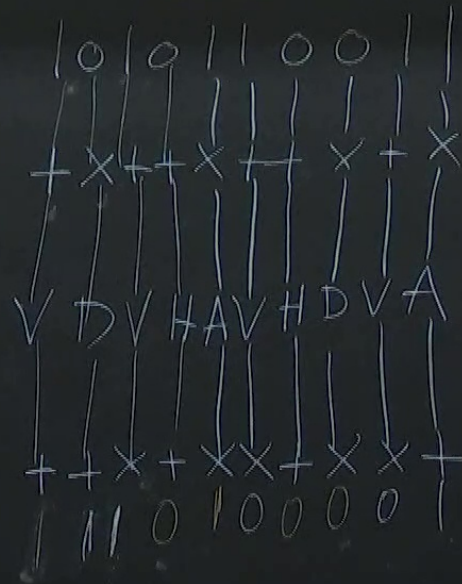 1 0 1 0 1 1 0 0 1 1
+ × + + × + + × + ×
V D V H A V H D V A
+ + × + × × + × × +
1 1 1 0 1 0 0 0 0 1